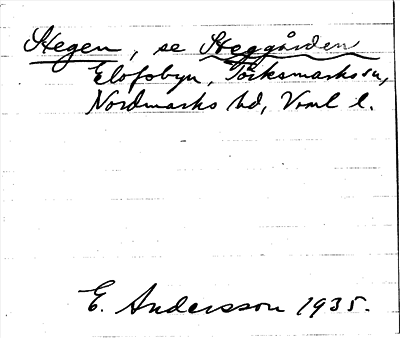 Stegen, se Steggården
Elofsbyn, Töcksmarks sn,
Nordmarks hd, Vrml l.
E. Andersson 1935.